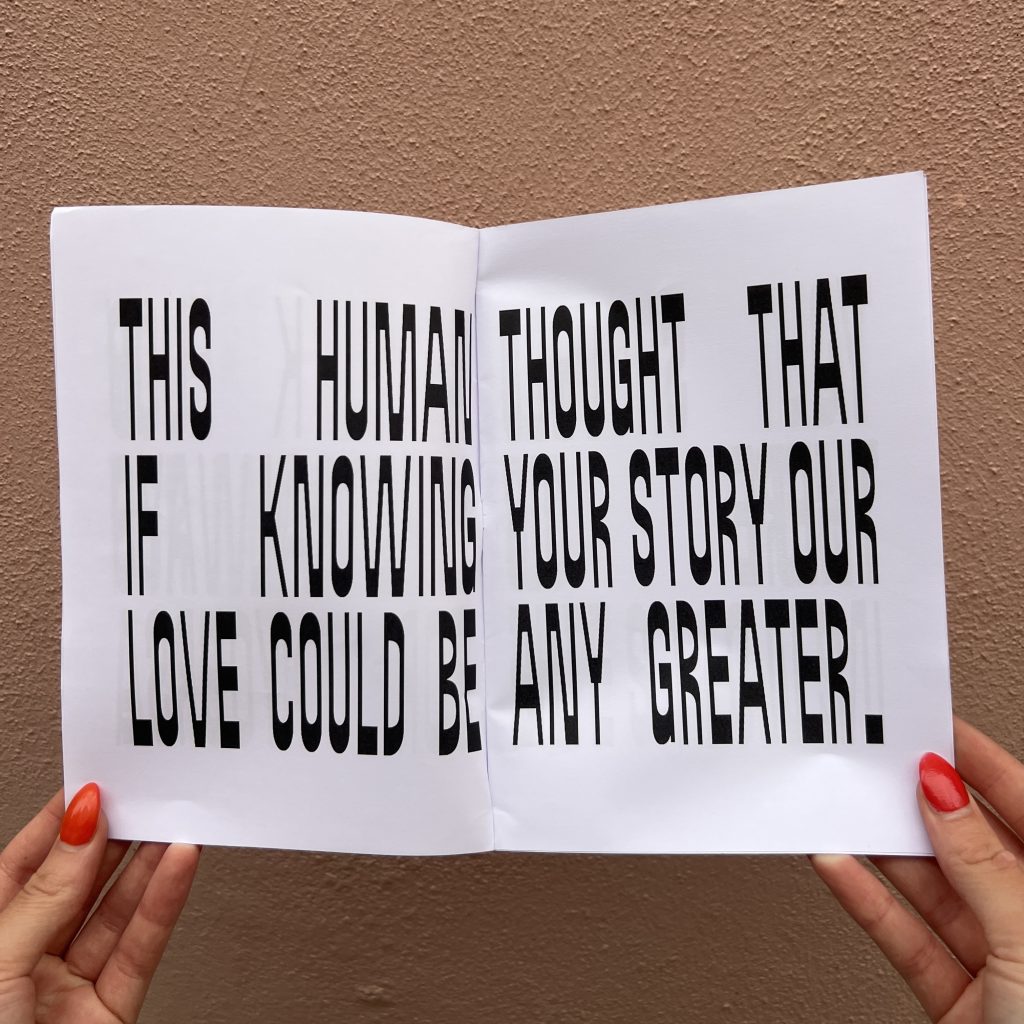 THIS HUMAN THOUGHT THAT
IF KNOWING YOUR STORY OUR
LOVE COULD BE ANY GREATER.